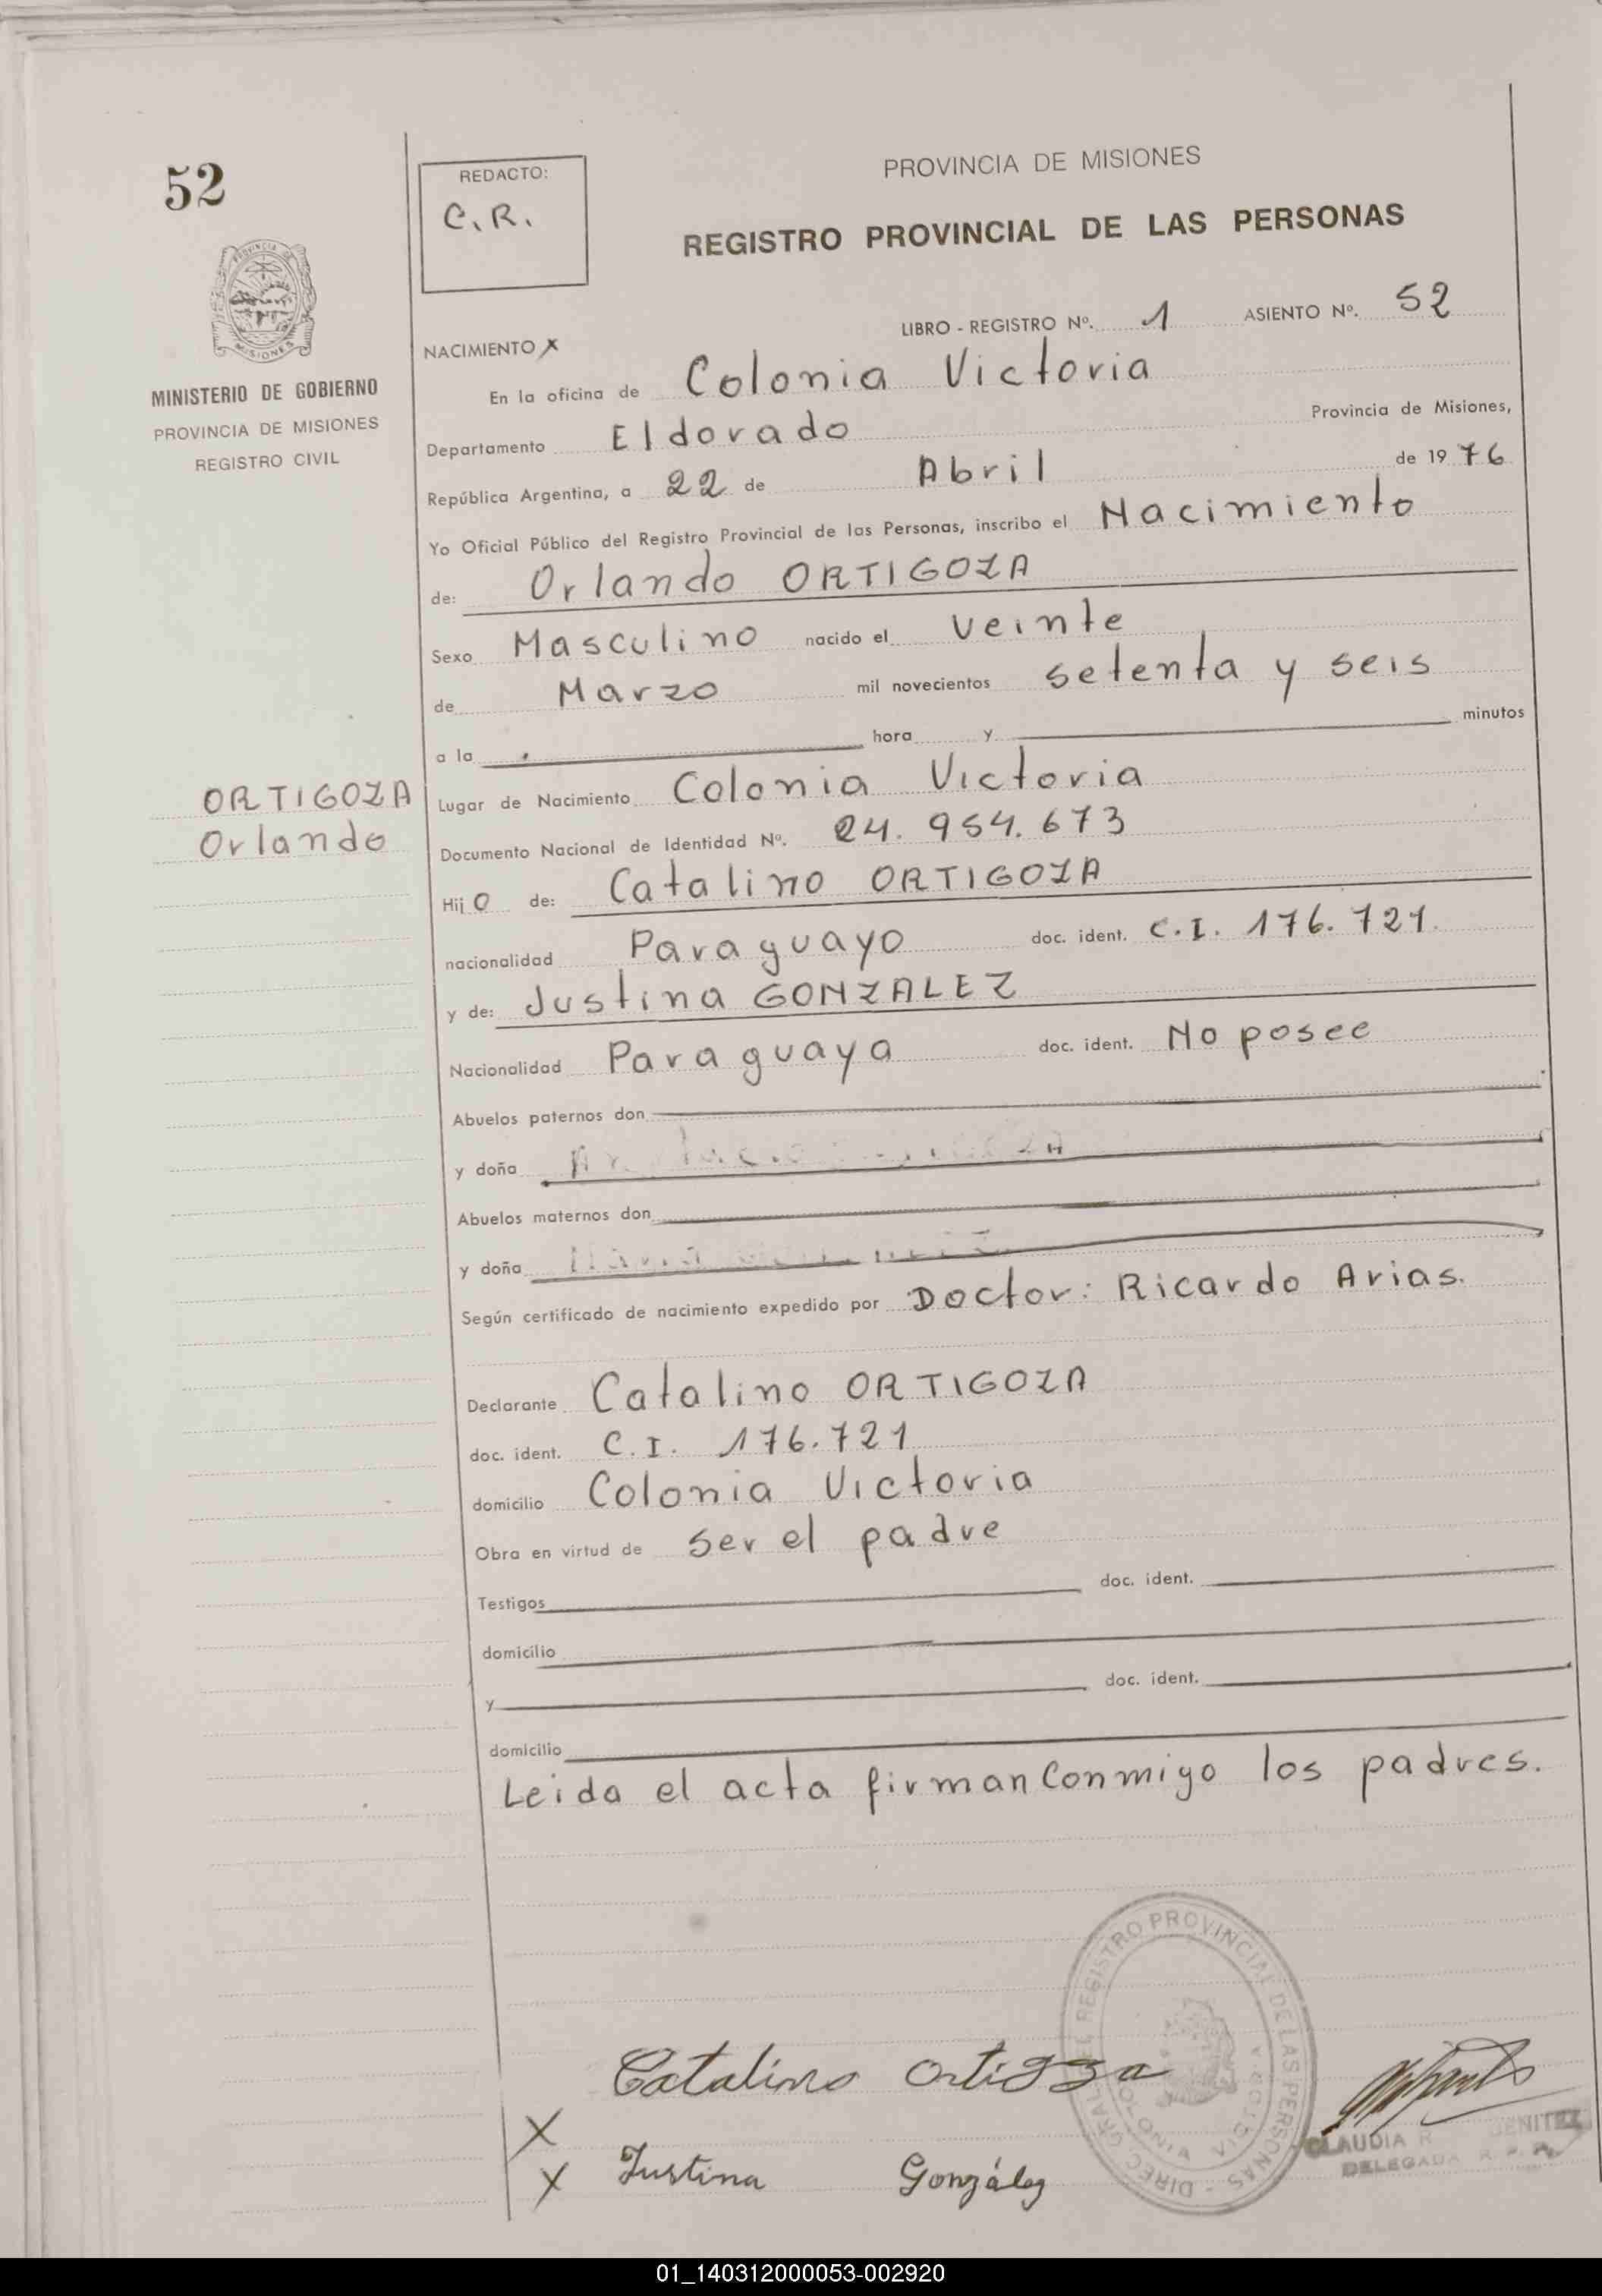 52
REDACTO:
C.R.
PROVINCIA DE MISIONES
REGISTRO PROVINCIAL DE LAS PERSONAS
PROVINCIA DE
MISIONES
MINISTERIO DE GOBIERNO
PROVINCIA DE MISIONES
REGISTRO CIVIL
LIBRO - REGISTRO Nº. 1 ASIENTO Nº. 52
NACIMIENTO X
En la oficina de Colonia Victoria
Departamento Eldorado Provincia de Misiones,
República Argentina, a 22 de Abril de 1976
Yo Oficial Público del Registro Provincial de las Personas, inscribo el Nacimiento
de: Orlando ORTIGOZA
Sexo Masculino nacido el veinte
de Marzo mil novecientos setenta y seis
a la hora y minutos
ORTIGOZA
Orlando
Lugar de Nacimiento Colonia Victoria
Documento Nacional de Identidad Nº. 24.954.673
Hijo de: Catalino ORTIGOZA
nacionalidad Paraguayo doc. ident. C.I. 176.721.
y de: Justina GONZALEZ
Nacionalidad Paraguaya doc. ident. No posee
Abuelos paternos don
y doña
Abuelos maternos don
y doña
Según certificado de nacimiento expedido por Doctor: Ricardo Arias.
Declarante Catalino ORTIGOZA
doc. ident. C.I. 176.721
domicilio Colonia Victoria
Obra en virtud de ser el padre
Testigos doc. ident.
domicilio
y doc. ident.
domicilio
Leida el acta firman conmigo los padres.
Catalino Ortigoza
X
X Justina González
DIREC. GRAL. DEL REGISTRO PROVINCIAL DE LAS PERSONAS -
COLONIA VICTORIA
CLAUDIA R BENITEZ
DELEGADA R. P. P.
01_140312000053-002920